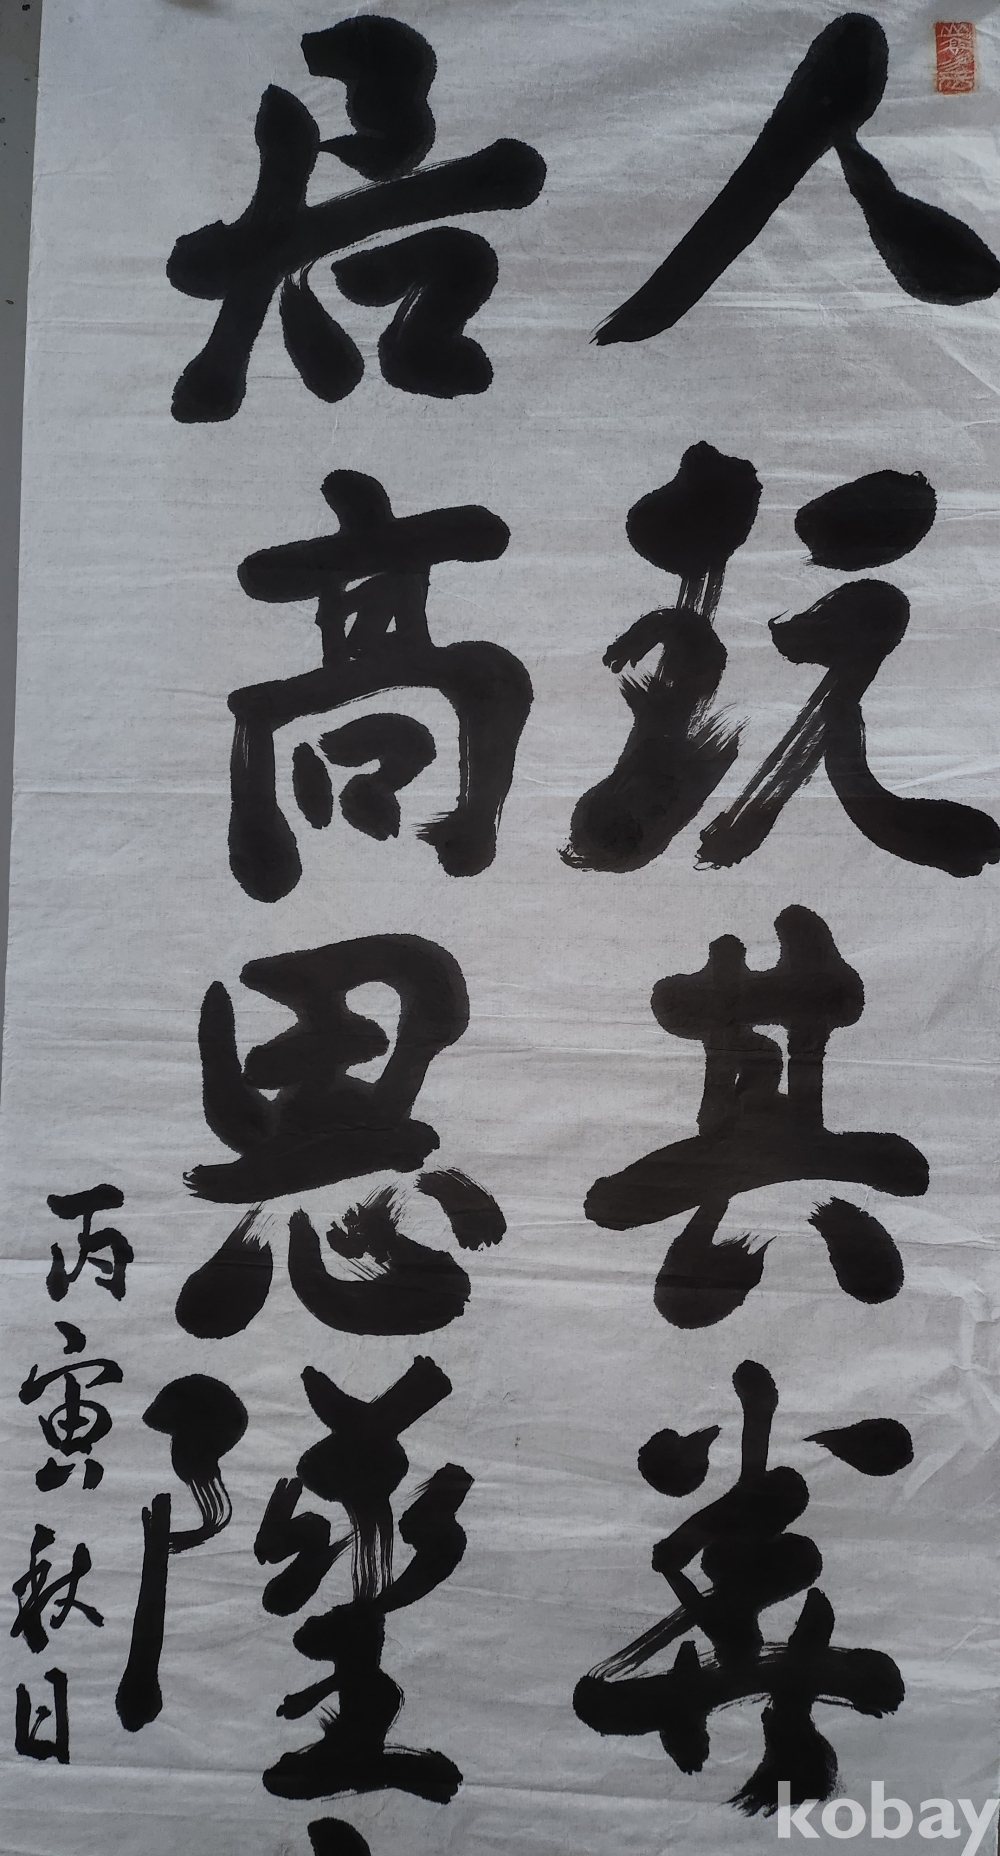 人玩其華
居高思墜
丙寅秋日
kobay